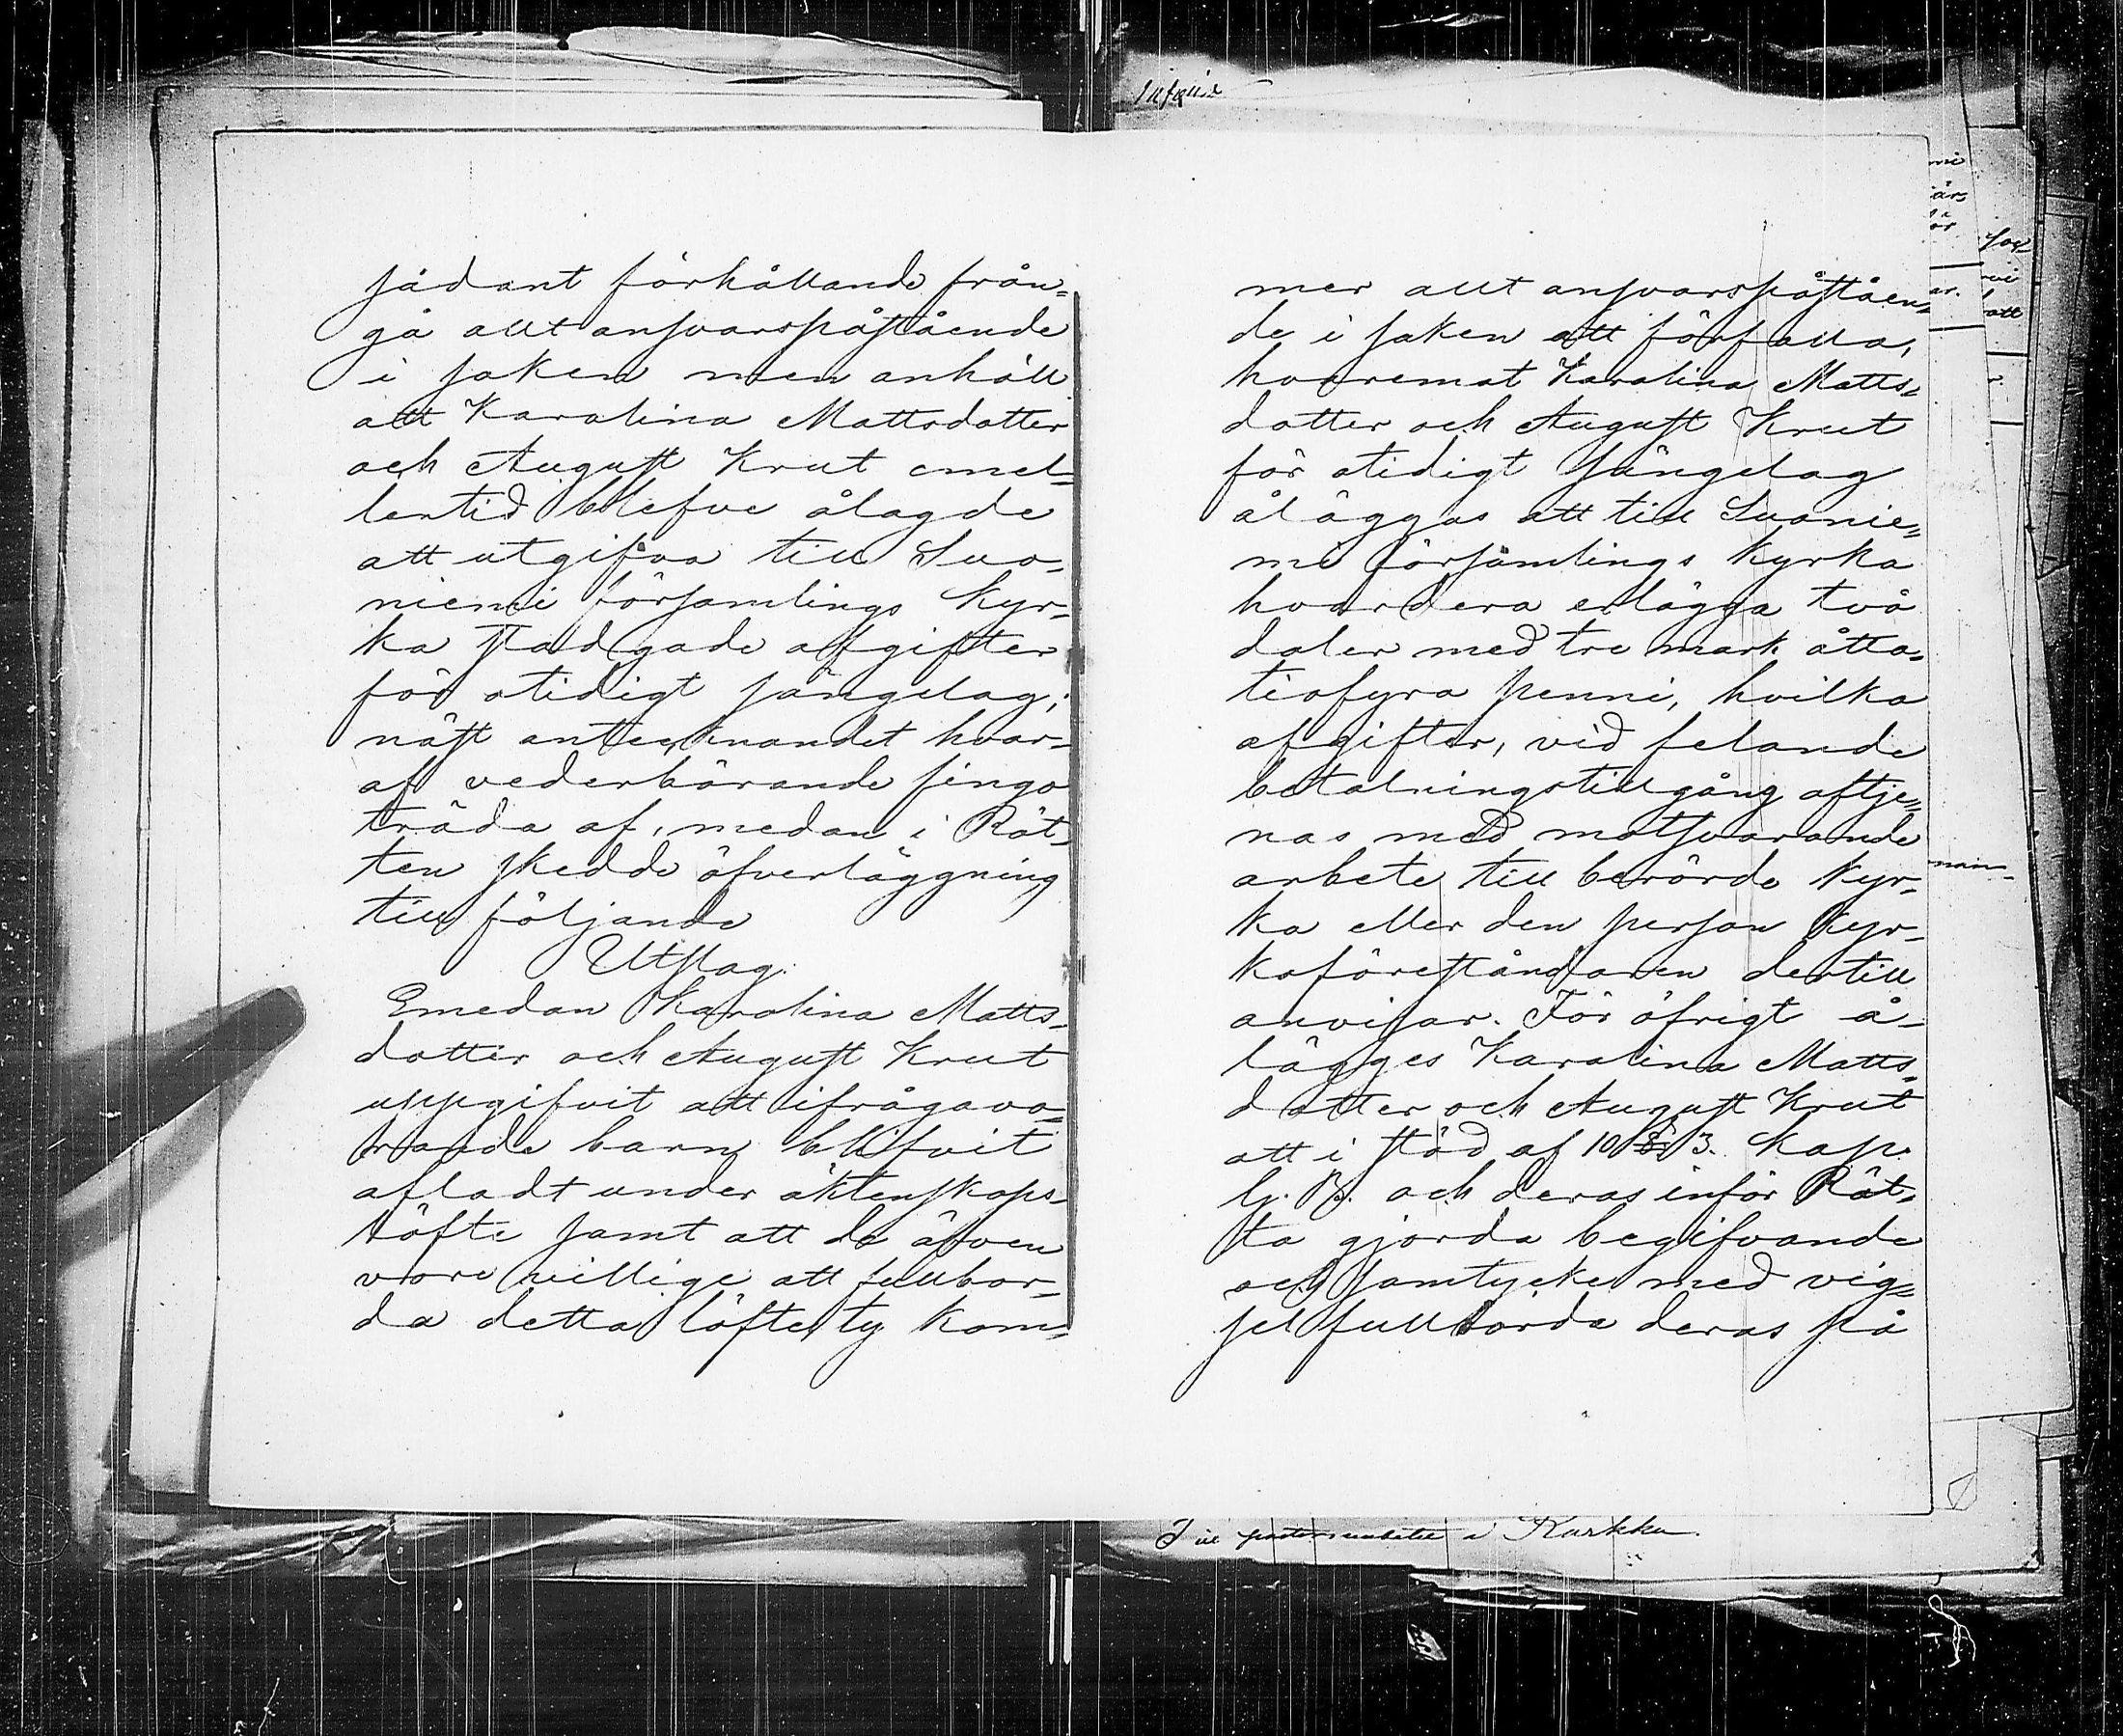 sådant förhållande från-
gå allt ansvarspåstående
i saken men anhöll
att Karolina Mattsdotter
och August Krut emel-
lertid blefve ålagde
att utgifva till Suo-
niemi församlings kyr-
ka stadgade afgifter
för otidigt sängelag;
näst antecknandet hvar-
af vederbörande fingo
träda af, medan i Rät-
ten skedde öfverläggning
till följande
Utslag:
Emedan Karolina Matts-
dotter och August Krut
uppgifvit att ifrågava-
rande barn blifvit
afladt under äktenskaps-
löfte samt att de äfven
vore villige att fullbor-
da detta löfte, ty kom-
mer allt ansvarspåståen-
de i saken att förfalla,
hvaremot Karolina Matts-
dotter och August Krut
för otidigt sängelag
åläggas att till Suonie-
mi församlings kyrka
hvardera erlägga två
daler med tre mark åtta-
tiofyra penni, hvilka
afgifter, vid felande
betalningstillgång aftje-
nas med motsvarande
arbete till berörde kyr-
ka eller den person kyr-
koföreståndaren dertill
anvisar. För öfrigt å-
lägges Karolina Matts-
dotter och August Krut
att i stöd af 10 § 3. Kap.
G. B. och deras inför Rät-
ta gjorda begifvande
och samtycke med vig-
sel fullborda deras på
Till pastorsembetet i Karkku.